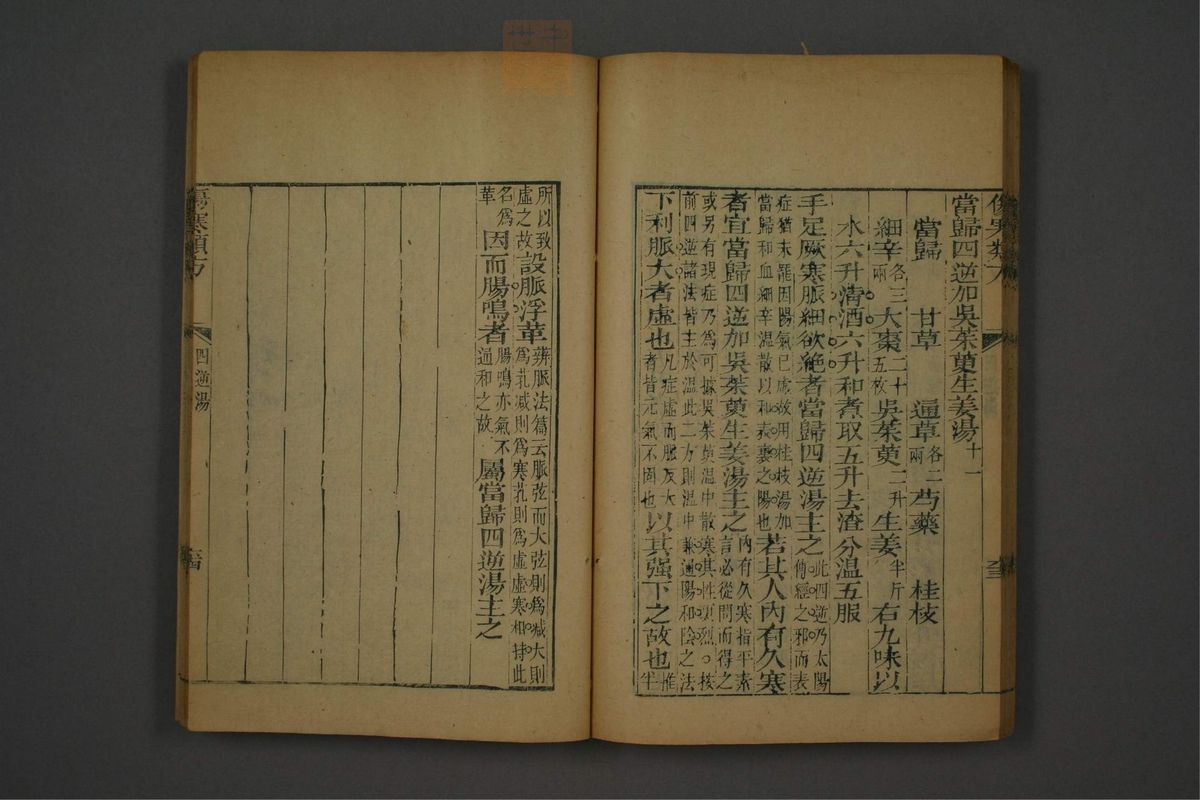 當歸四逆加吳茱萸生姜湯十一
當歸 甘草 通草各二兩 芍藥 桂枝
細辛各三兩 大棗二十五枚 吳茱萸二升 生姜半斤 右九味以
水六升清酒六升和煮取五升去渣分温五服
手足厥寒脈細欲絶者當歸四逆湯主之此四逆乃太陽傳經之邪而表
症猶未罷因陽氣已虚故用桂枝湯加當歸和血細辛温散以和表裏之陽也若其人內有久寒
者宜當歸四逆加吳茱萸生姜湯主之內有久寒指平素言必從問而得之
或另有現症乃為可據吳茱萸温中散寒其性更烈○按前四逆諸法皆主於温此二方則温中兼通陽和陰之法
下利脈大者虚也凡症虚而脈反大者皆元氣不固也以其强下之故也惟半
所以致虚之故設脈浮革辨脈法篇云脈弦而大弦則為减大則
名為革因而腸鳴者為芤减則為寒芤則為虚虚寒相持此腸鳴亦氣不過和之故屬當歸四逆湯主之
傷寒類方
四逆湯